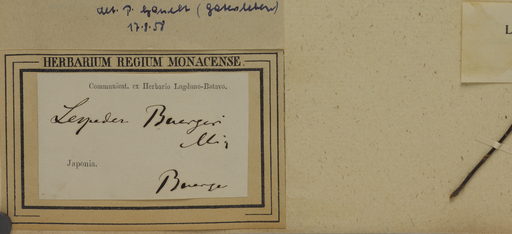 det. P. Hanelt (Gatersleben)
17.9.58
L
HERBARIUM REGIUM MONACENSE.
Communicat. ex Herbario Lugduno-Batavo.
Lespedez Buergeri
Miq
Japonia.
Buerge